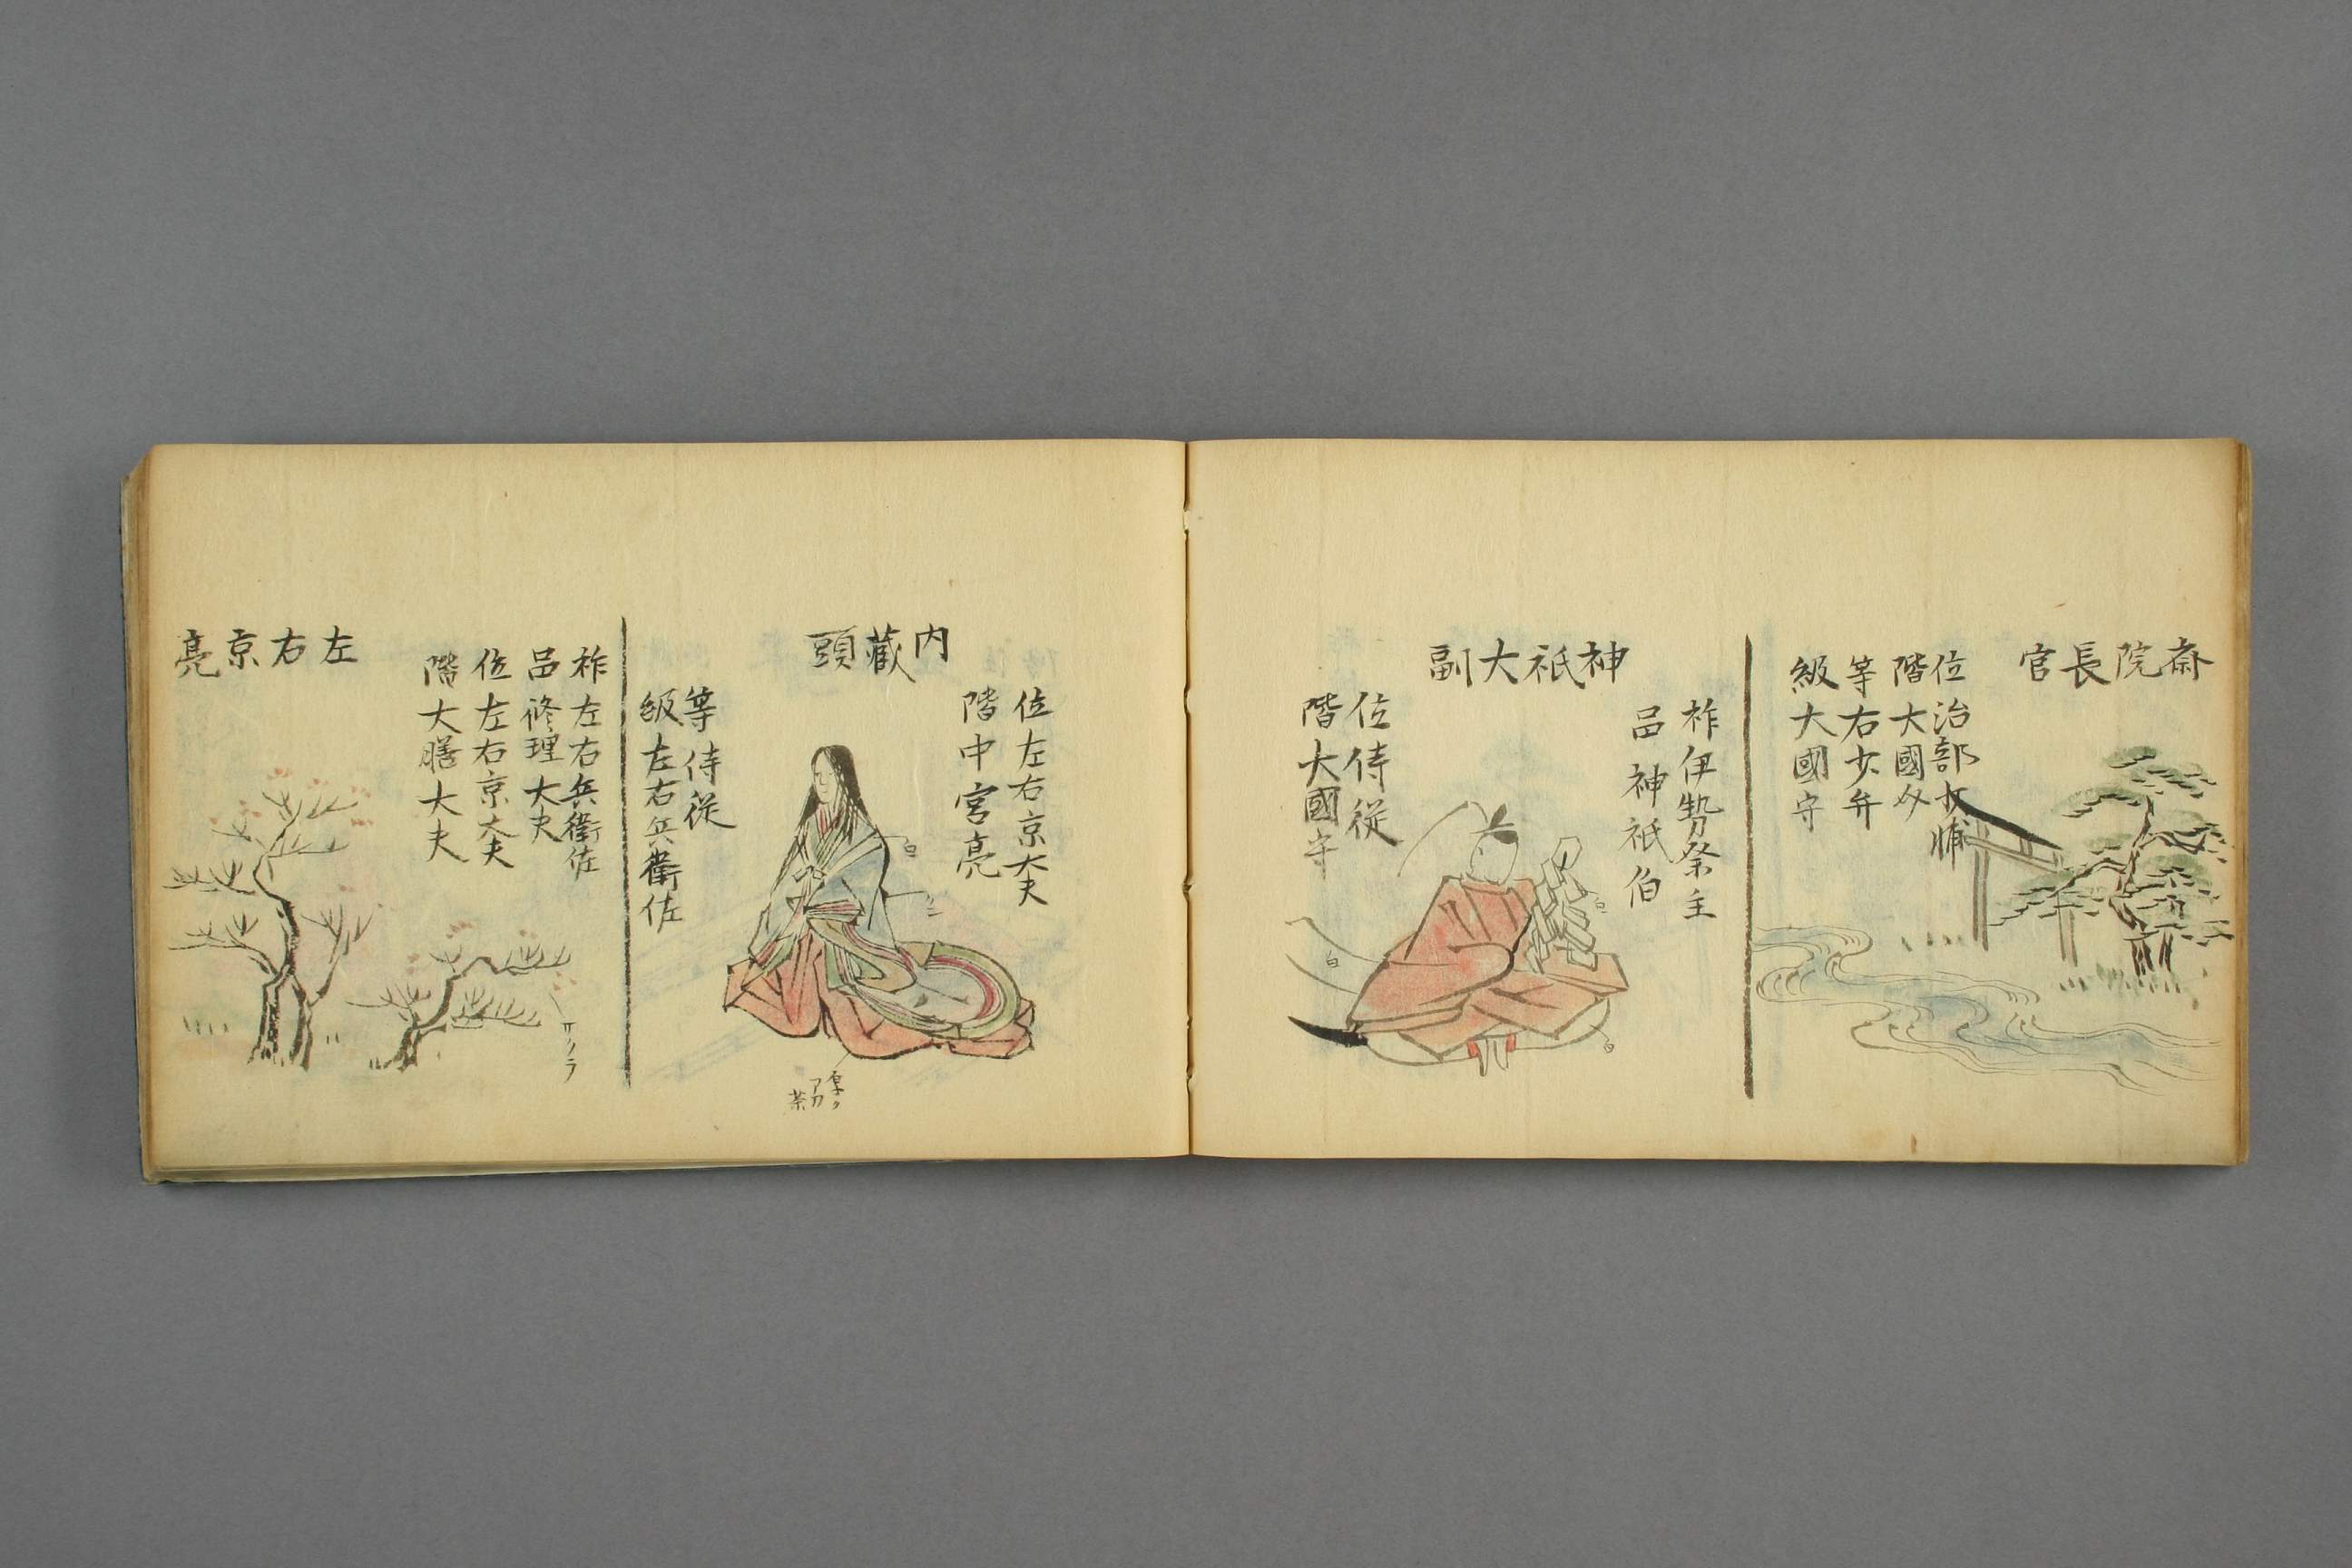 斎院長官
位治部少輔
階大國外
等右少弁
級大國守
神祇大副
祚伊勢祭主
呂神祇伯
位侍従
階大國守
白
白
白
内藏頭
位左右京大夫
階中宮亮
等侍従
級左右兵衛佐
白
祚左右兵衛佐
呂修理大夫
位左右京大夫
階大膳大夫
左右京亮
サクラ